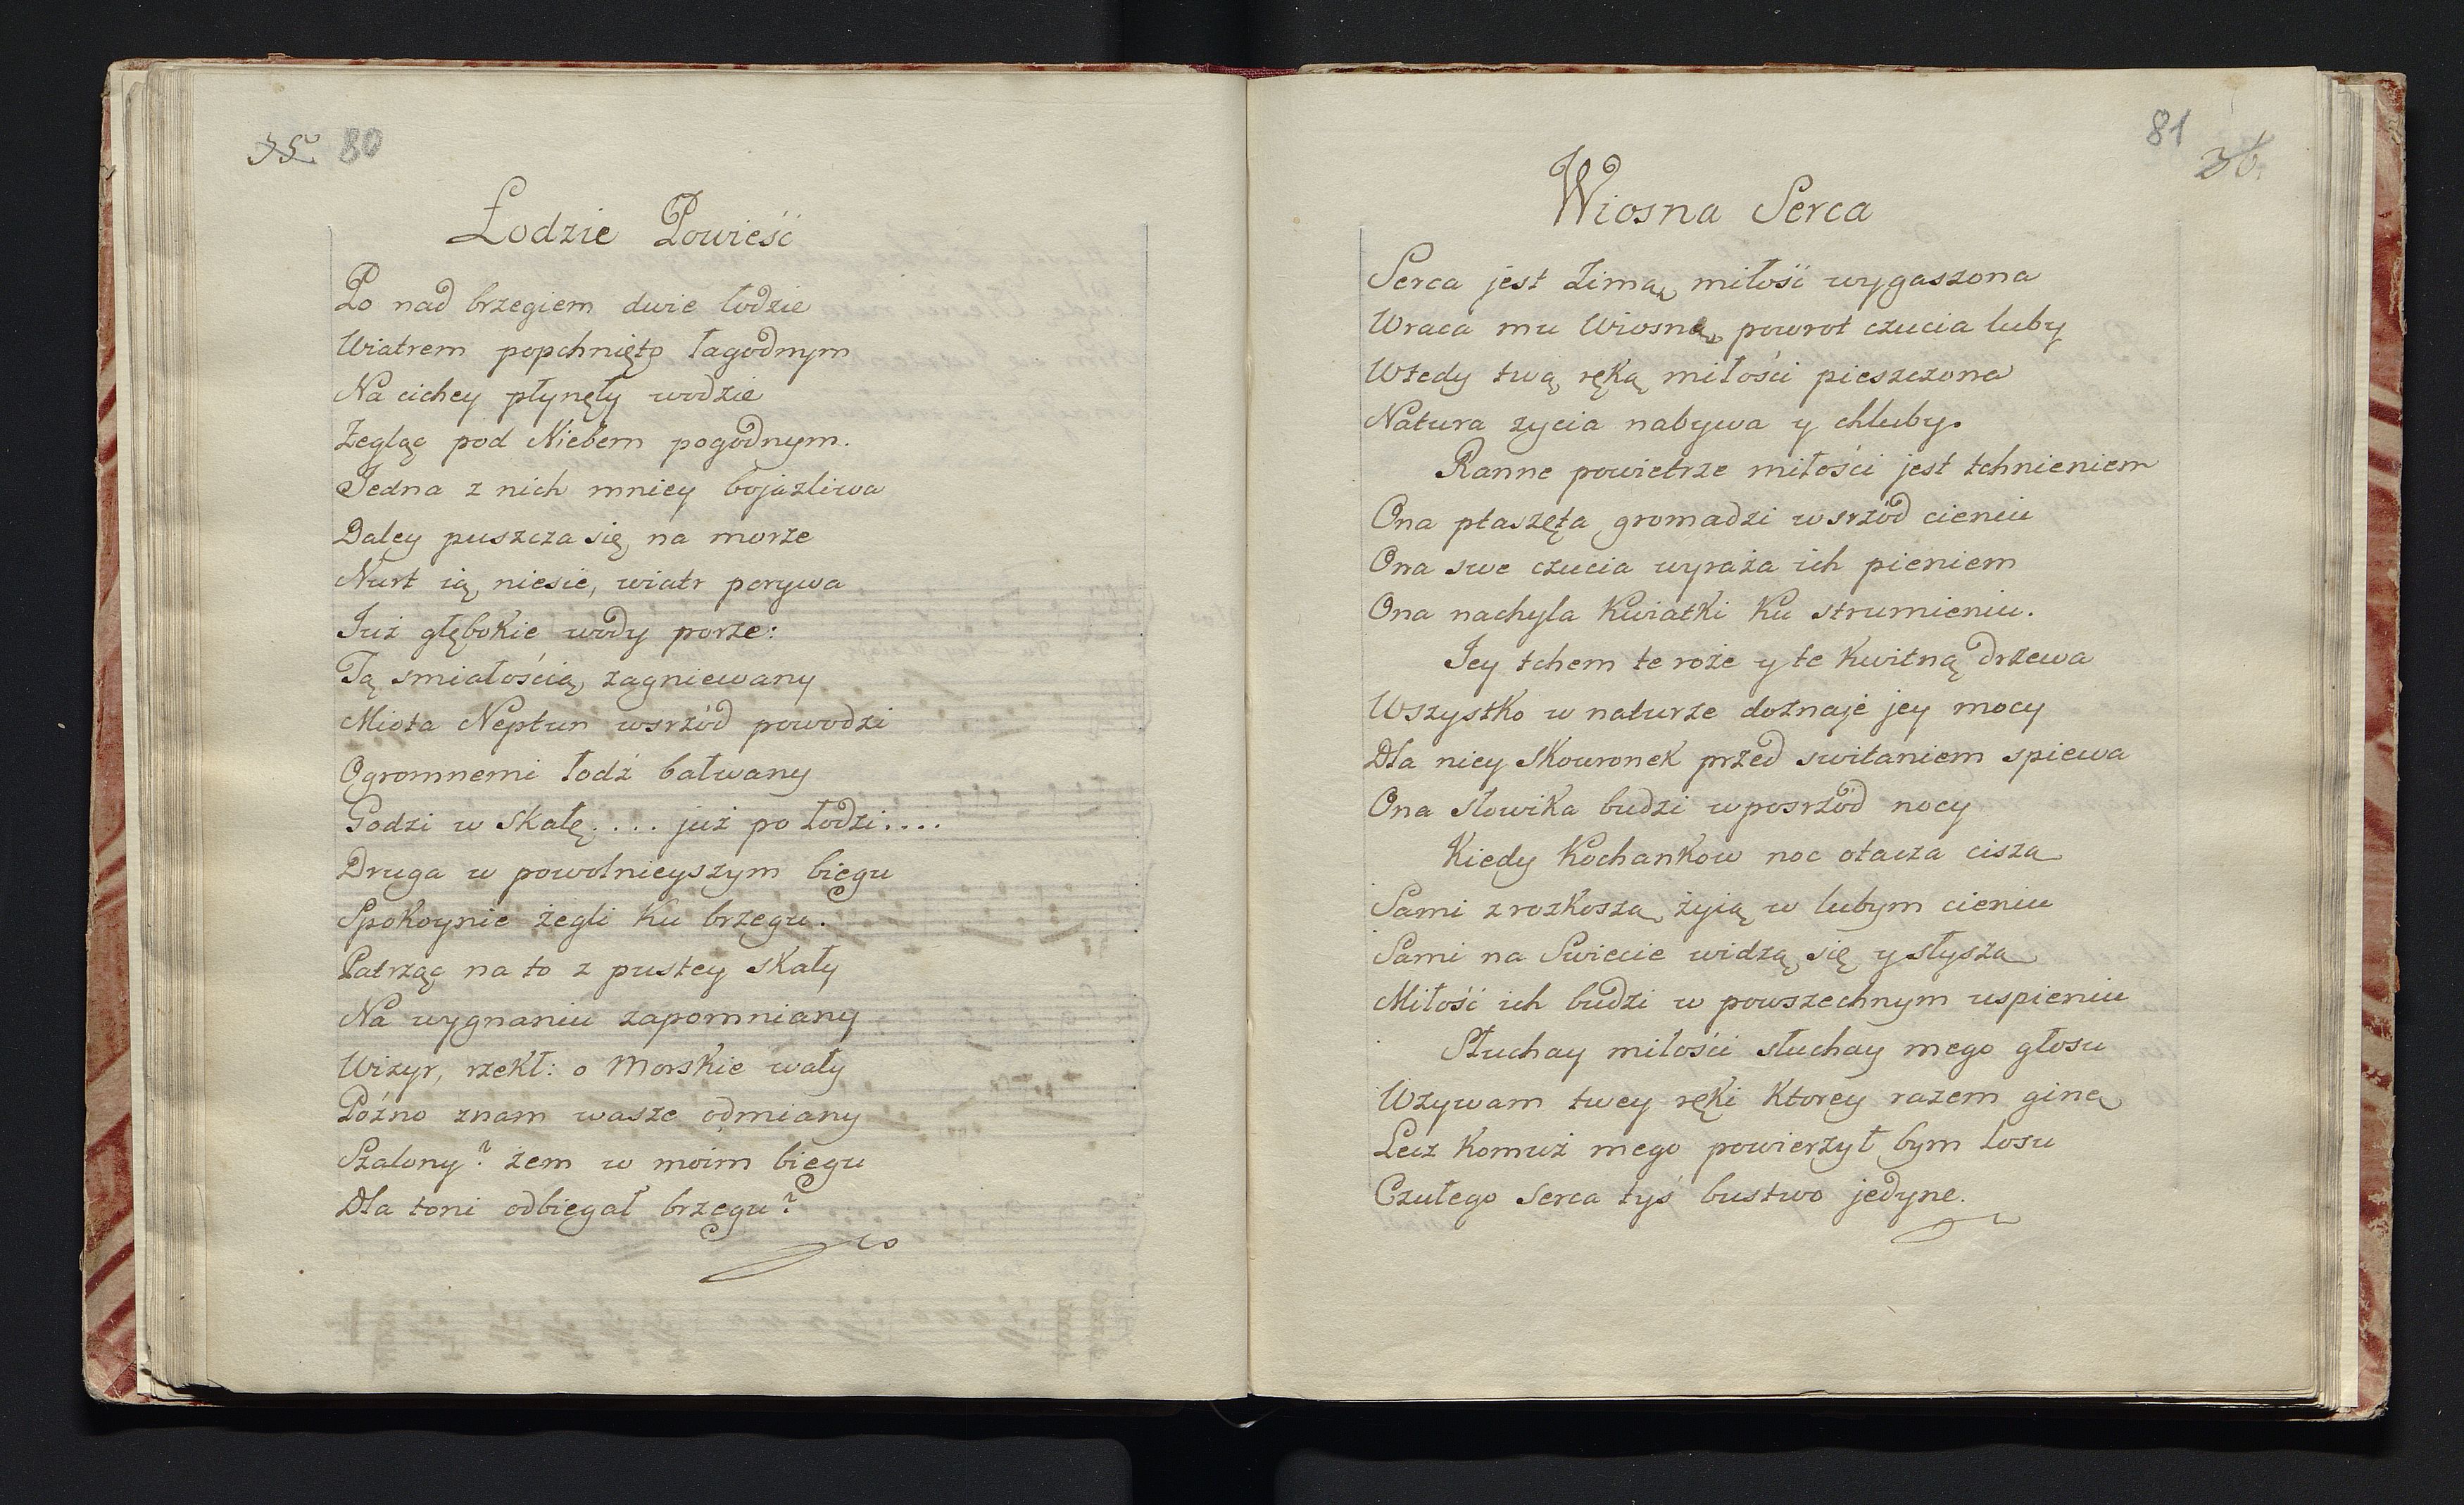 35. 80
Łodzie Powieść
Po nad brzegiem dwie łodzie
Wiatrem popchnięte łagodnym
Na cichey płynęły wodzie
Zegląc pod Niebem pogodnym.
Jedna z nich mniey bojazliwa
Daley puszcza się na morze
Nurt ią niesie, wiatr porywa
Już głębokie wody porze:
Tą smiałością zagniewany
Miota Neptun wsrzód powodzi
Ogromnemi łodź bałwany
Godzi w skałę.... już po łodzi....
Druga w powolnieyszym biegu
Spokoynie żegli ku brzegu.
Patrząc na to z pustey skały
Na wygnaniu zapomniany
Wizyr, rzekł: o Morskie wały
Poźno znam wasze odmiany
Szalony? żem w moim biegu
Dla toni odbiegał brzegu?
81
36.
Wiosna Serca
Serca jest zimą, miłość wygaszona
Wraca mu Wiosnę, powrot czucia luby
Wtedy twą ręką miłości pieszczona
Natura zycia nabywa y chluby.
Ranne powietrze miłości jest tchnieniem
Ona ptaszęta gromadzi wsrzód cieniu
Ona swe czucia wyraża ich pieniem
Ona nachyla kwiatki ku strumieniu.
Jey tchem te roże y te kwitną drzewa
Wszystko w naturze doznaje jey mocy
Dla niey skowronek przed switaniem spiewa
Ona słowika budzi wposrzód nocy
Kiedy kochankow noc otacza cisza
Sami z rozkoszą żyią w lubym cieniu
Sami na Swiecie widzą się y słyszą
Miłość ich budzi w powszechnym uspieniu
Słuchay miłości słuchay mego głosu
Wzywam twey ręki ktorey razem ginę
Lecz komuż mego powierzył bym losu
Czułego serca tyś bustwo jedyne.